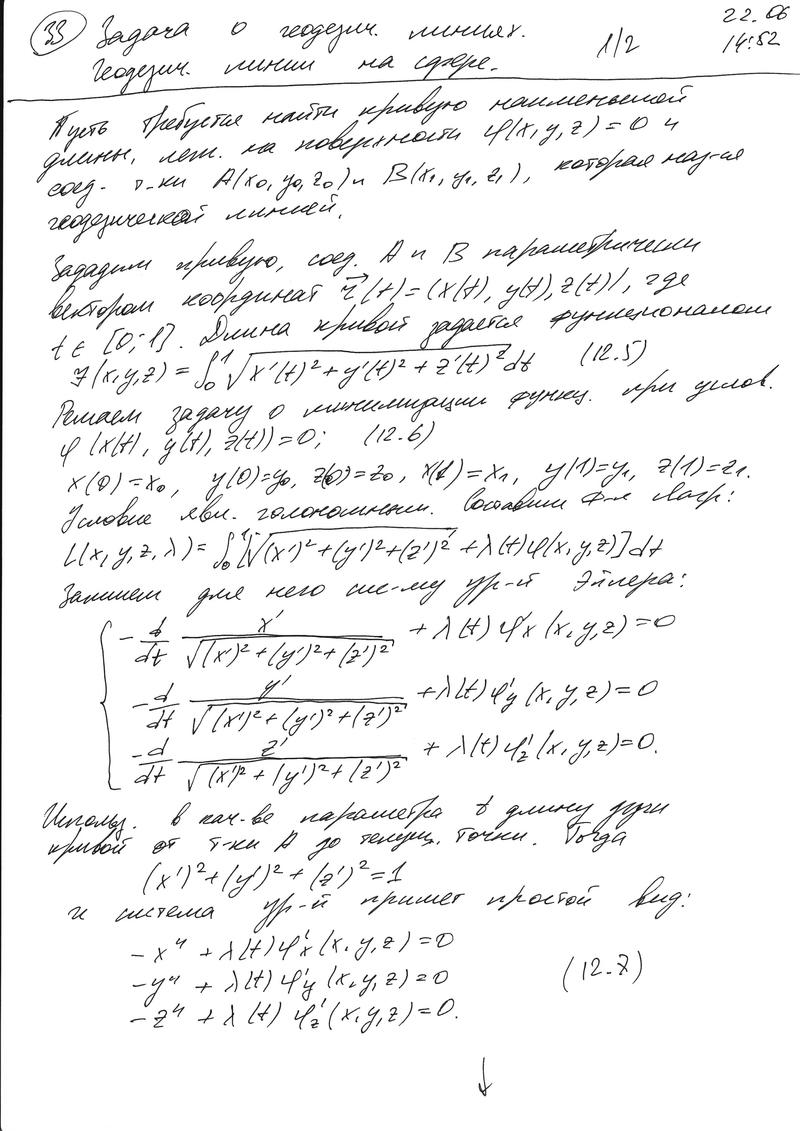 33 Задача о геодезич. линиях. 1/2 22.06
Геодезич. линии на сфере. 14:52
Пусть требуется найти кривую наименьшей
длины, леж. на поверхности φ(x,y,z)=0 и
соед. т-ки A(x₀,y₀,z₀) и B(x₁,y₁,z₁), которая наз-ся
геодезической линией.
Зададим кривую, соед. A и B параметрически
вектором координат r⃗(t)=(x(t), y(t), z(t)), где
t∈[0;1]. Длина кривой задается функционалом
J(x,y,z) = ∫₀¹ √(x'(t)²+y'(t)²+z'(t)²) dt (12.5)
Решаем задачу о минимизации функц. при услов.
φ(x(t), y(t), z(t))=0; (12.6)
x(0)=x₀, y(0)=y₀, z(0)=z₀, x(1)=x₁, y(1)=y₁, z(1)=z₁.
Условие явл. голономным. Составим ф-л Лагр:
L(x,y,z,λ)=∫₀¹[√((x')²+(y')²+(z')²) + λ(t)φ(x,y,z)]dt
Запишем для него сис-му ур-й Эйлера:
-d/dt x'/√((x')²+(y')²+(z')²) + λ(t)φ'x(x,y,z)=0
-d/dt y'/√((x')²+(y')²+(z')²) + λ(t)φ'y(x,y,z)=0
-d/dt z'/√((x')²+(y')²+(z')²) + λ(t)φ'z(x,y,z)=0.
Использ. в кач-ве параметра t длину дуги
кривой от т-ки A до текущ. точки. Тогда
(x')²+(y')²+(z')²=1
и система ур-й примет простой вид:
-x'' + λ(t)φ'x(x,y,z)=0
-y'' + λ(t)φ'y(x,y,z)=0 (12.7)
-z'' + λ(t)φ'z(x,y,z)=0.
↓